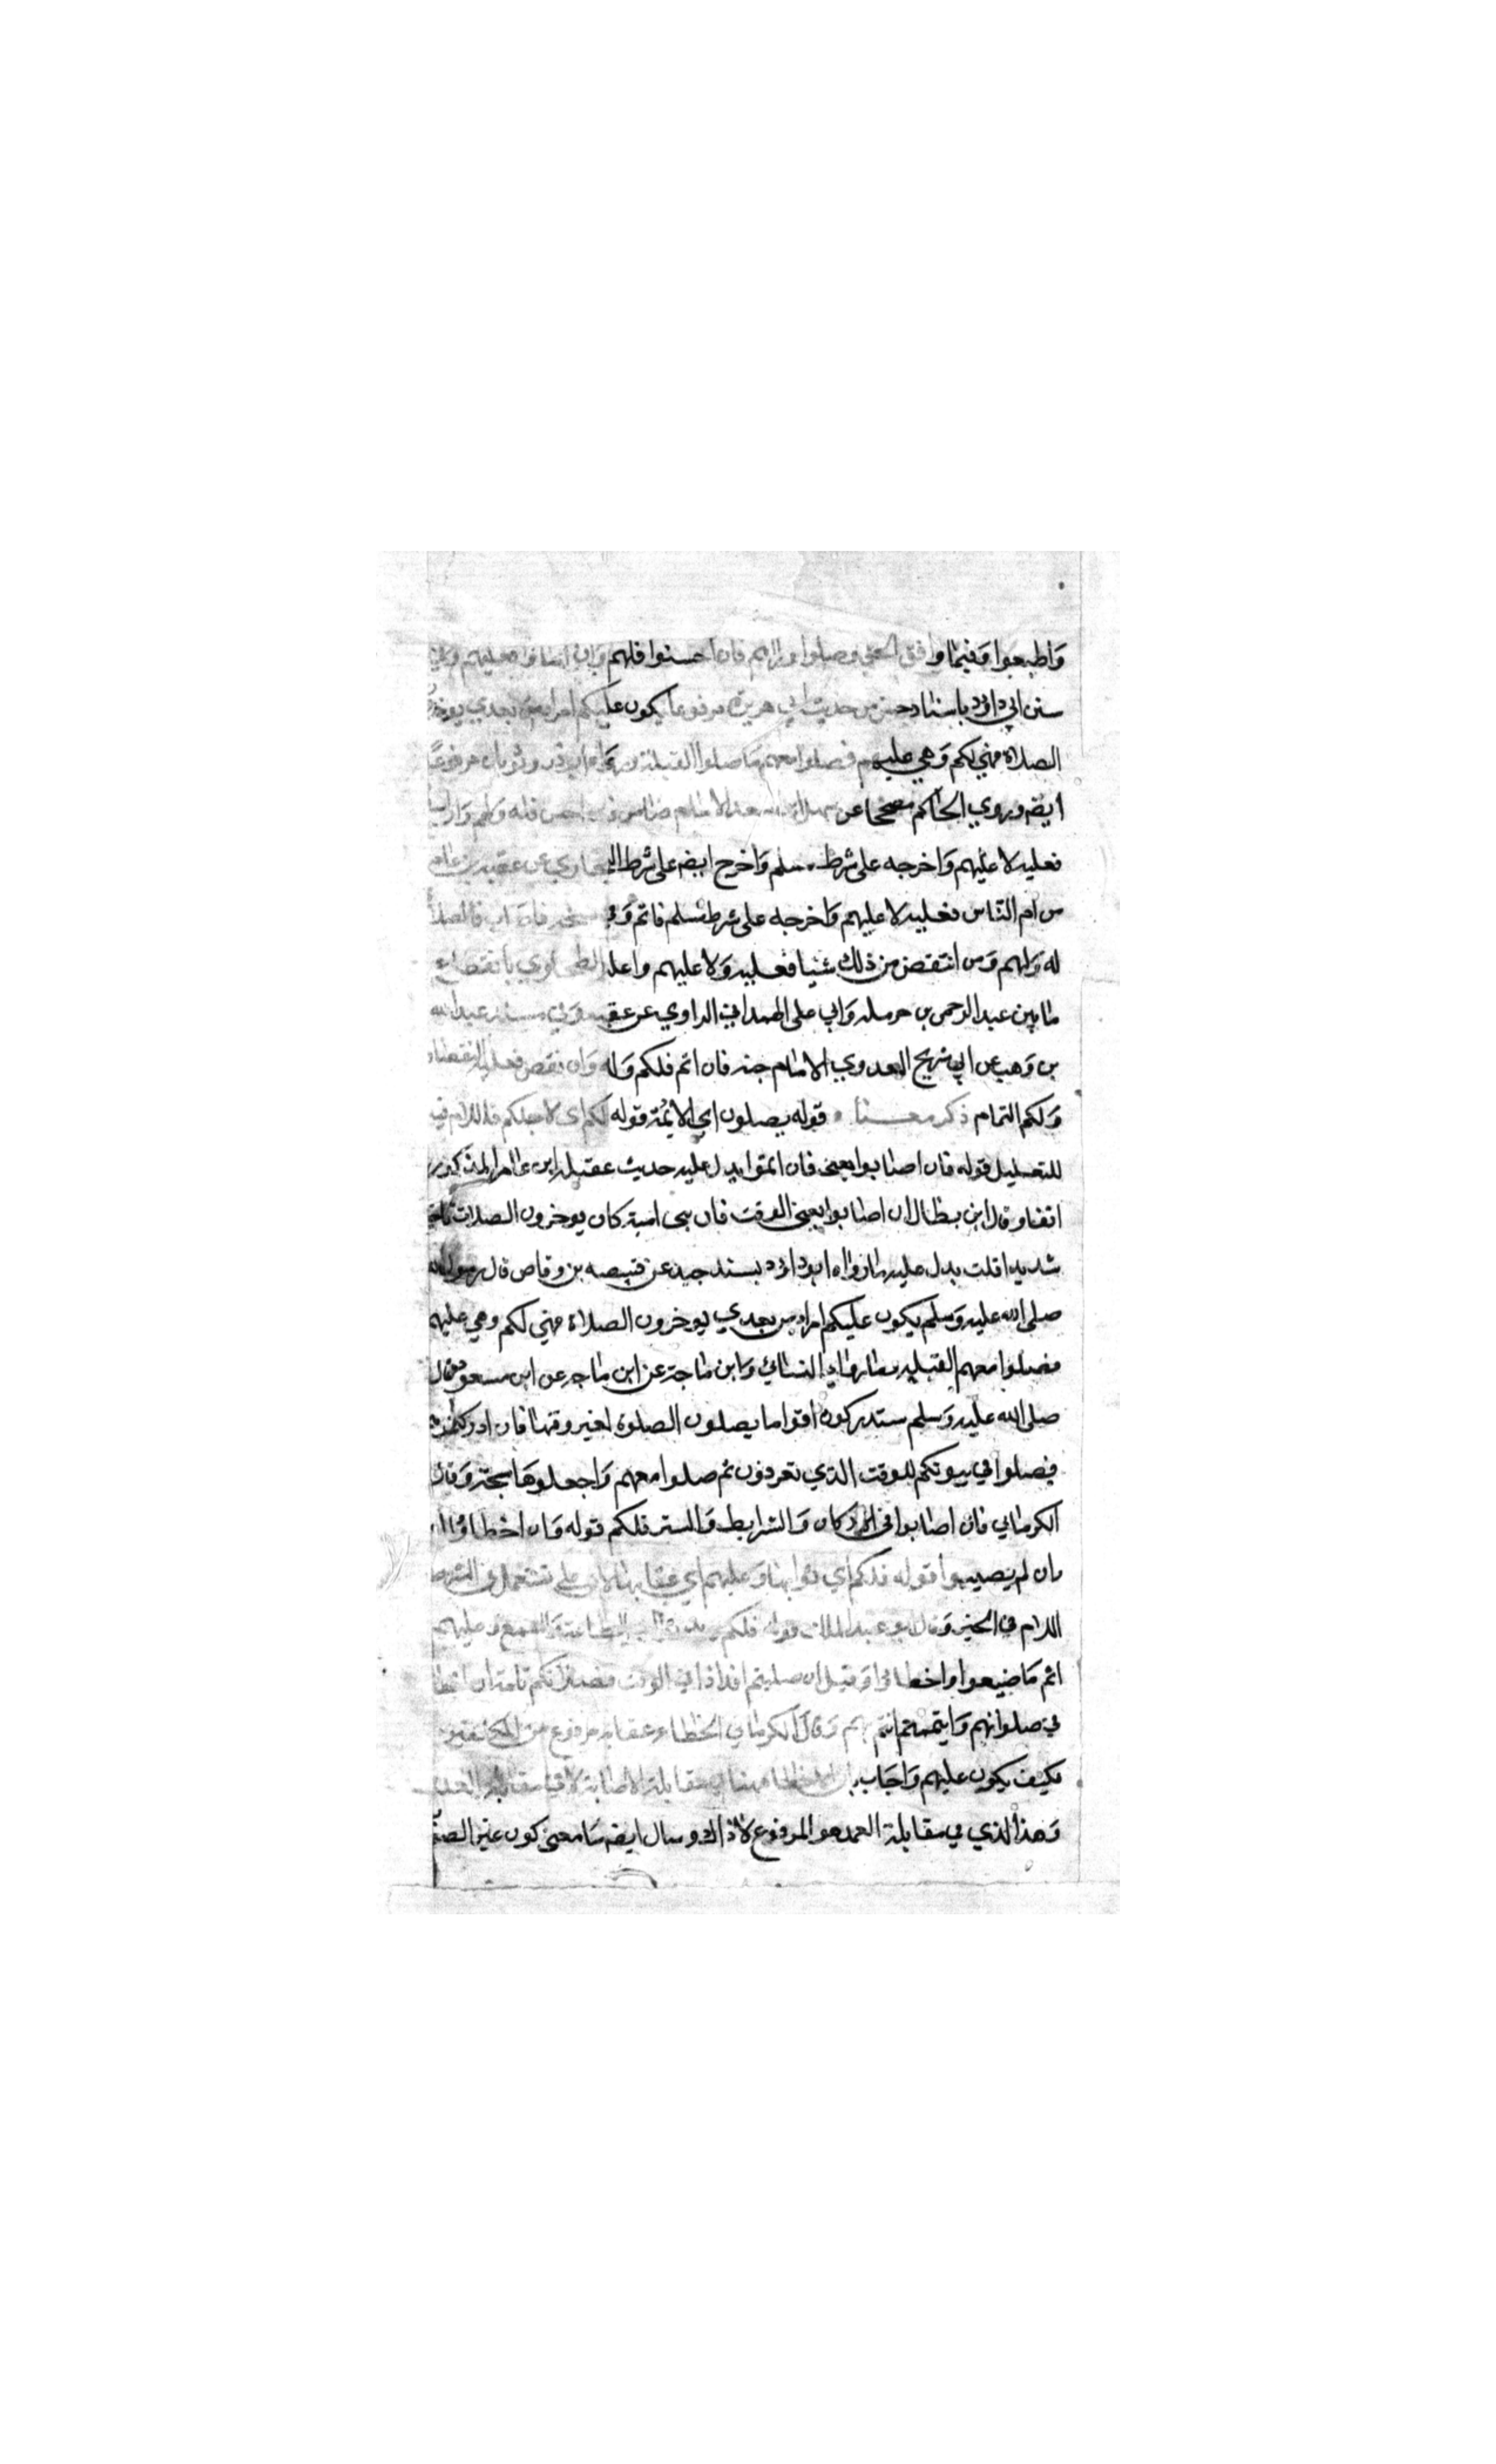 واطيعوا وفيما وافق الحق وصلوا وراهم فان احسنوا فلهم وان اساوا فعليهم وفي
سنن ابي داود باسناد حسن من حديث ابي هريرة مرفوعا يكون عليكم امرا من بعدي يوخرون
الصلاة فهي لكم وهي عليهم فصلوا معهم ما صلوا القبلة وثوبان مرفوعا
ايضه وروي الحاكم مصححا عن سهل الامام ضامن احسن فله ولهم وان اسا
فعليه لا عليهم واخرجه على شرط مسلم واخرج ايضه على شرط البخاري عن عقبه بن عامر
من ام الناس فعليه لا عليهم واخرجه على شرط مسلم فاتم وفي فالصلاة
له ولهم ومن انتقض من ذلك شيا فعليه ولا عليهم واعله الطحاوي بانقطاع
ما بين عبد الرحمن بن حرمله وابي على الهمداني الراوي عن عقبه وفي مسند عبد الله
بن وهب عن ابي شريح العدوي الامام جنه فان اتم فلكم وله وان نقص فعليه النقصان
ولكم التمام ذكر معناه قوله يصلون اي الايمة قوله لكم اي لاجلكم فاللام فيه
للتعليل قوله فان اصابوا يعني فان اتموا يدل عليه حديث عقبه ابن عامر المذكور
انفا وقال ابن بطال ان اصابوا يعني الوقت فان بني امية كان يوخرون الصلات تاخيرا
شديدا قلت يدل عليه ما رواه ابو داود بسند جيد عن قبيصه بن وقاص قال رسول الله
صلى الله عليه وسلم يكون عليكم امراء من بعدي يوخرون الصلاة فهي لكم وهي عليهم
فصلوا معهم القبله النسائي وابن ماجة عن ابن ماجه عن ابن مسعود قال
صلى الله عليه وسلم ستدركون اقواما يصلون الصلوة لغير وقتها فان ادركتموهم
فصلوا في بيوتكم للوقت الذي تعرفون ثم صلوا معهم واجعلوها سبحة وقال
الكرماني فان اصابوا في الاركان والشرايط والسنن فلكم قوله وان اخطاوا
بان لم يصيبوا قوله فلكم اي ثوابها وعليهم اي عقابها لان على تستعمل في الشر
اللام في الخير وقال ابو عبد الملك قوله فلكم يريد ثواب الطاعة والسمع وعليهم
اثم ما ضيعوا واخطاوا وقيل ان صليتم افذاذا في الوقت فصلاتكم تامة ان اخطاوا
في صلواتهم وايتممتم انتم بهم وقال الكرماني الخطاء عقابه مرفوع عن المكلفين
فكيف يكون عليهم واجاب بان الاخطا ههنا في مقابلة الاصابة لا في مقابلة العمد
وهذا الذي في مقابلة العمد هو المرفوع لا ذاك وسال ايضه ما معنى كون غير الصواب